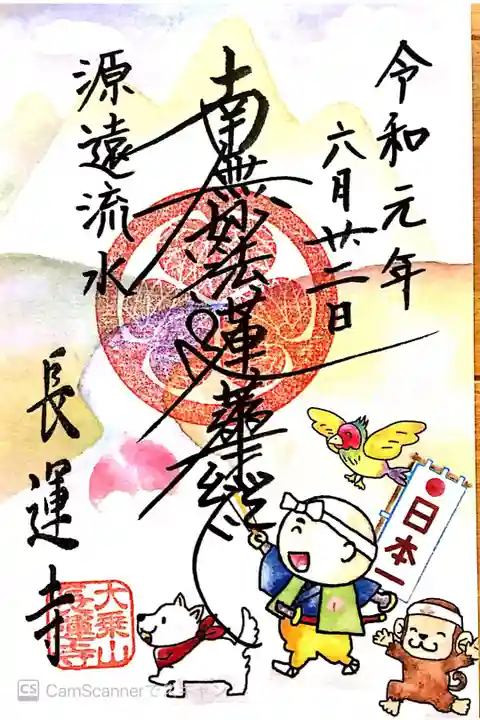 令和元年
六月廿二日
南無妙法蓮華経
源遠流水
長運寺
日本一
大乗山
長運寺
CS CamScannerでスキャン